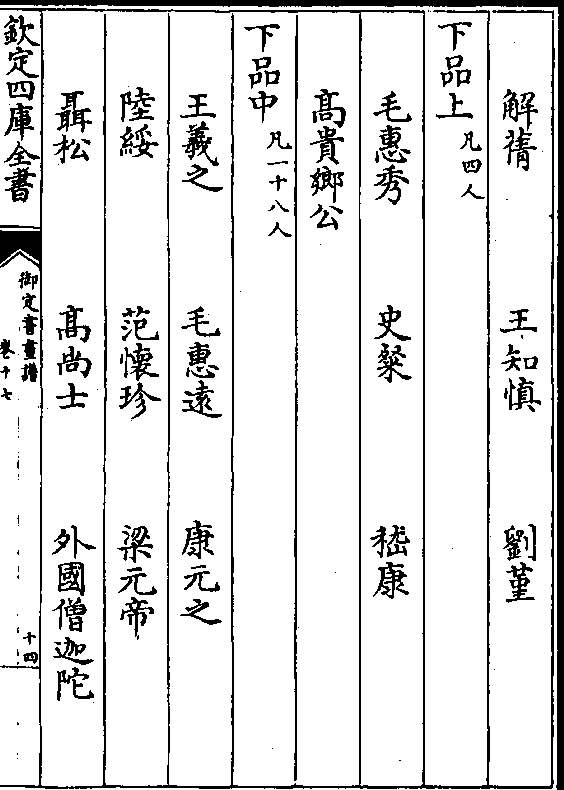 解蒨　王知慎　劉堇
下品上 凡四人
毛惠秀　史粲　嵇康
髙貴鄉公
下品中 凡一十八人
王羲之　毛惠遠　康元之
陸綏　范懷珍　梁元帝
聶松　髙尚士　外國僧迦陀
欽定四庫全書 御定書畫譜 卷十七 十四